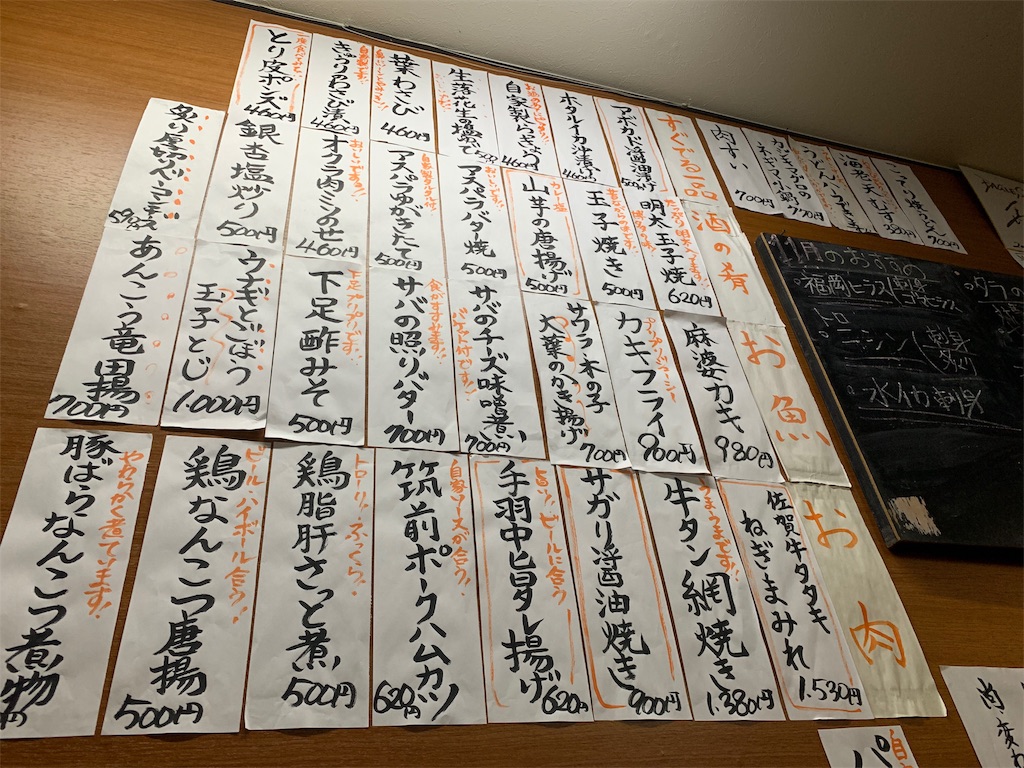 すぐでる一品
アボカド醤油漬け
500円
ホタルイカ沖漬け
460円
自家製らっきょう
460円
生落花生の塩ゆで
葉わさび
460円
自家製です!
きゅうりのわさび漬
460円
一度食べてみて!
とり皮ポンズ
460円
肉すい
700円
酒の肴
たっぷり明太入ってます!
明太玉子焼
620円
玉子焼き
500円
山芋の唐揚げ
500円
おいしいです!
アスパラバター焼
500円
アスパラゆがきたて
500円
おいしいですよ!
オクラ肉ミソのせ
460円
銀杏塩炒り
500円
炙り厚切ベーコンチーズ
お魚
麻婆カキ
980円
カキフライ
900円
サワラ木の子
大葉のかき揚げ
700円
バゲット付です!
サバのチーズ味噌煮
700円
サバの照りバター
700円
下足プリプリです!
下足酢みそ
500円
ウナギとごぼう
玉子とじ
1.000円
あんこう竜田揚
700円
お肉
佐賀牛タタキ
ねぎまみれ
1.530円
うまうまです!
牛タン網焼き
1.380円
サガリ醤油焼き
900円
旨い!ビールに合う
手羽中甘ダレ揚げ
620円
自家ソースが合う!
筑前ポークハムカツ
620円
トローリ!ふっくら!
鶏脂肝さっと煮
500円
ビール ハイボール合う!
鶏なんこつ唐揚
500円
やわらかく煮ています!
豚ばらなんこつ煮物
円
11月のおすすめ
福岡ヒラス
トロ
ニシン
刺身
炙り
水イカ刺身